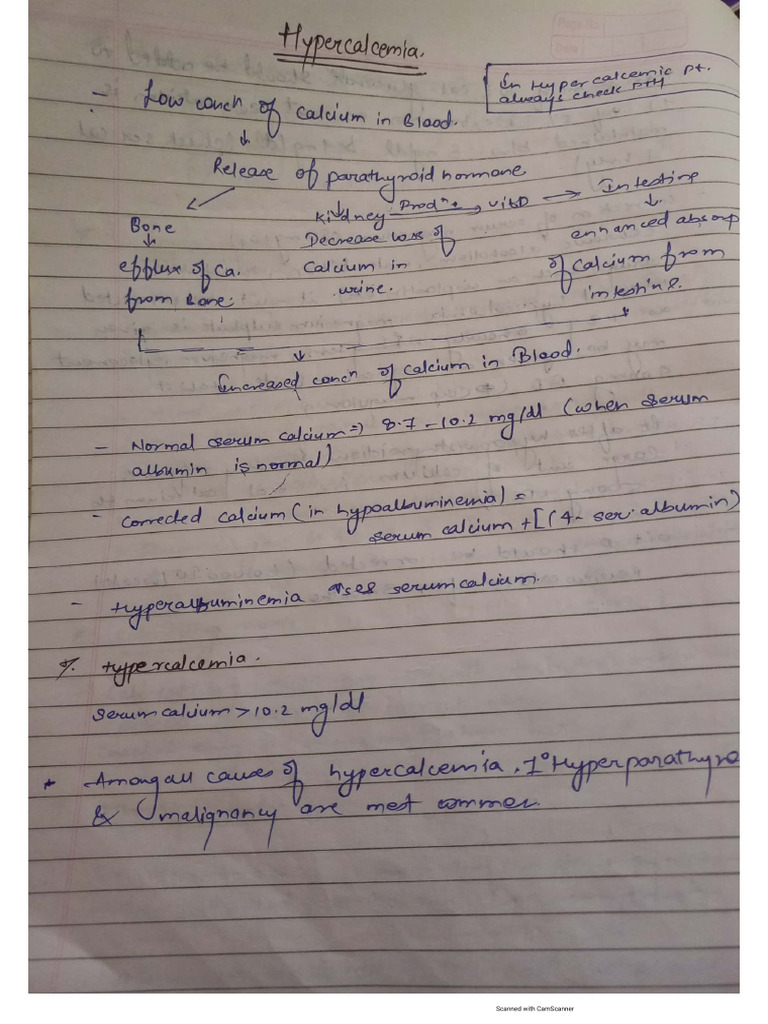 Hypercalcemia.
In Hypercalcemic pt.
always check PTH
- Low concn of calcium in Blood.
↓
Release of parathyroid hormone
Kidney Prodn → VitD → Intestine
Bone
↓
efflux of Ca.
from Bone.
Decrease loss of
Calcium in
urine.
↓
enhanced absorp
of calcium from
intestine.
↓
Increased concn of calcium in Blood.
- Normal serum calcium ⇒ 8.7 - 10.2 mg/dl (when serum
albumin is normal)
- Corrected calcium (in hypoalbuminemia) =
serum calcium + [(4 - ser. albumin)
- Hyperalbuminemia ↑ses serum calcium.
Hypercalcemia.
serum calcium > 10.2 mg/dl
* Among all causes of hypercalcemia, 1° Hyperparathyro
& malignancy are most common.
Scanned with CamScanner